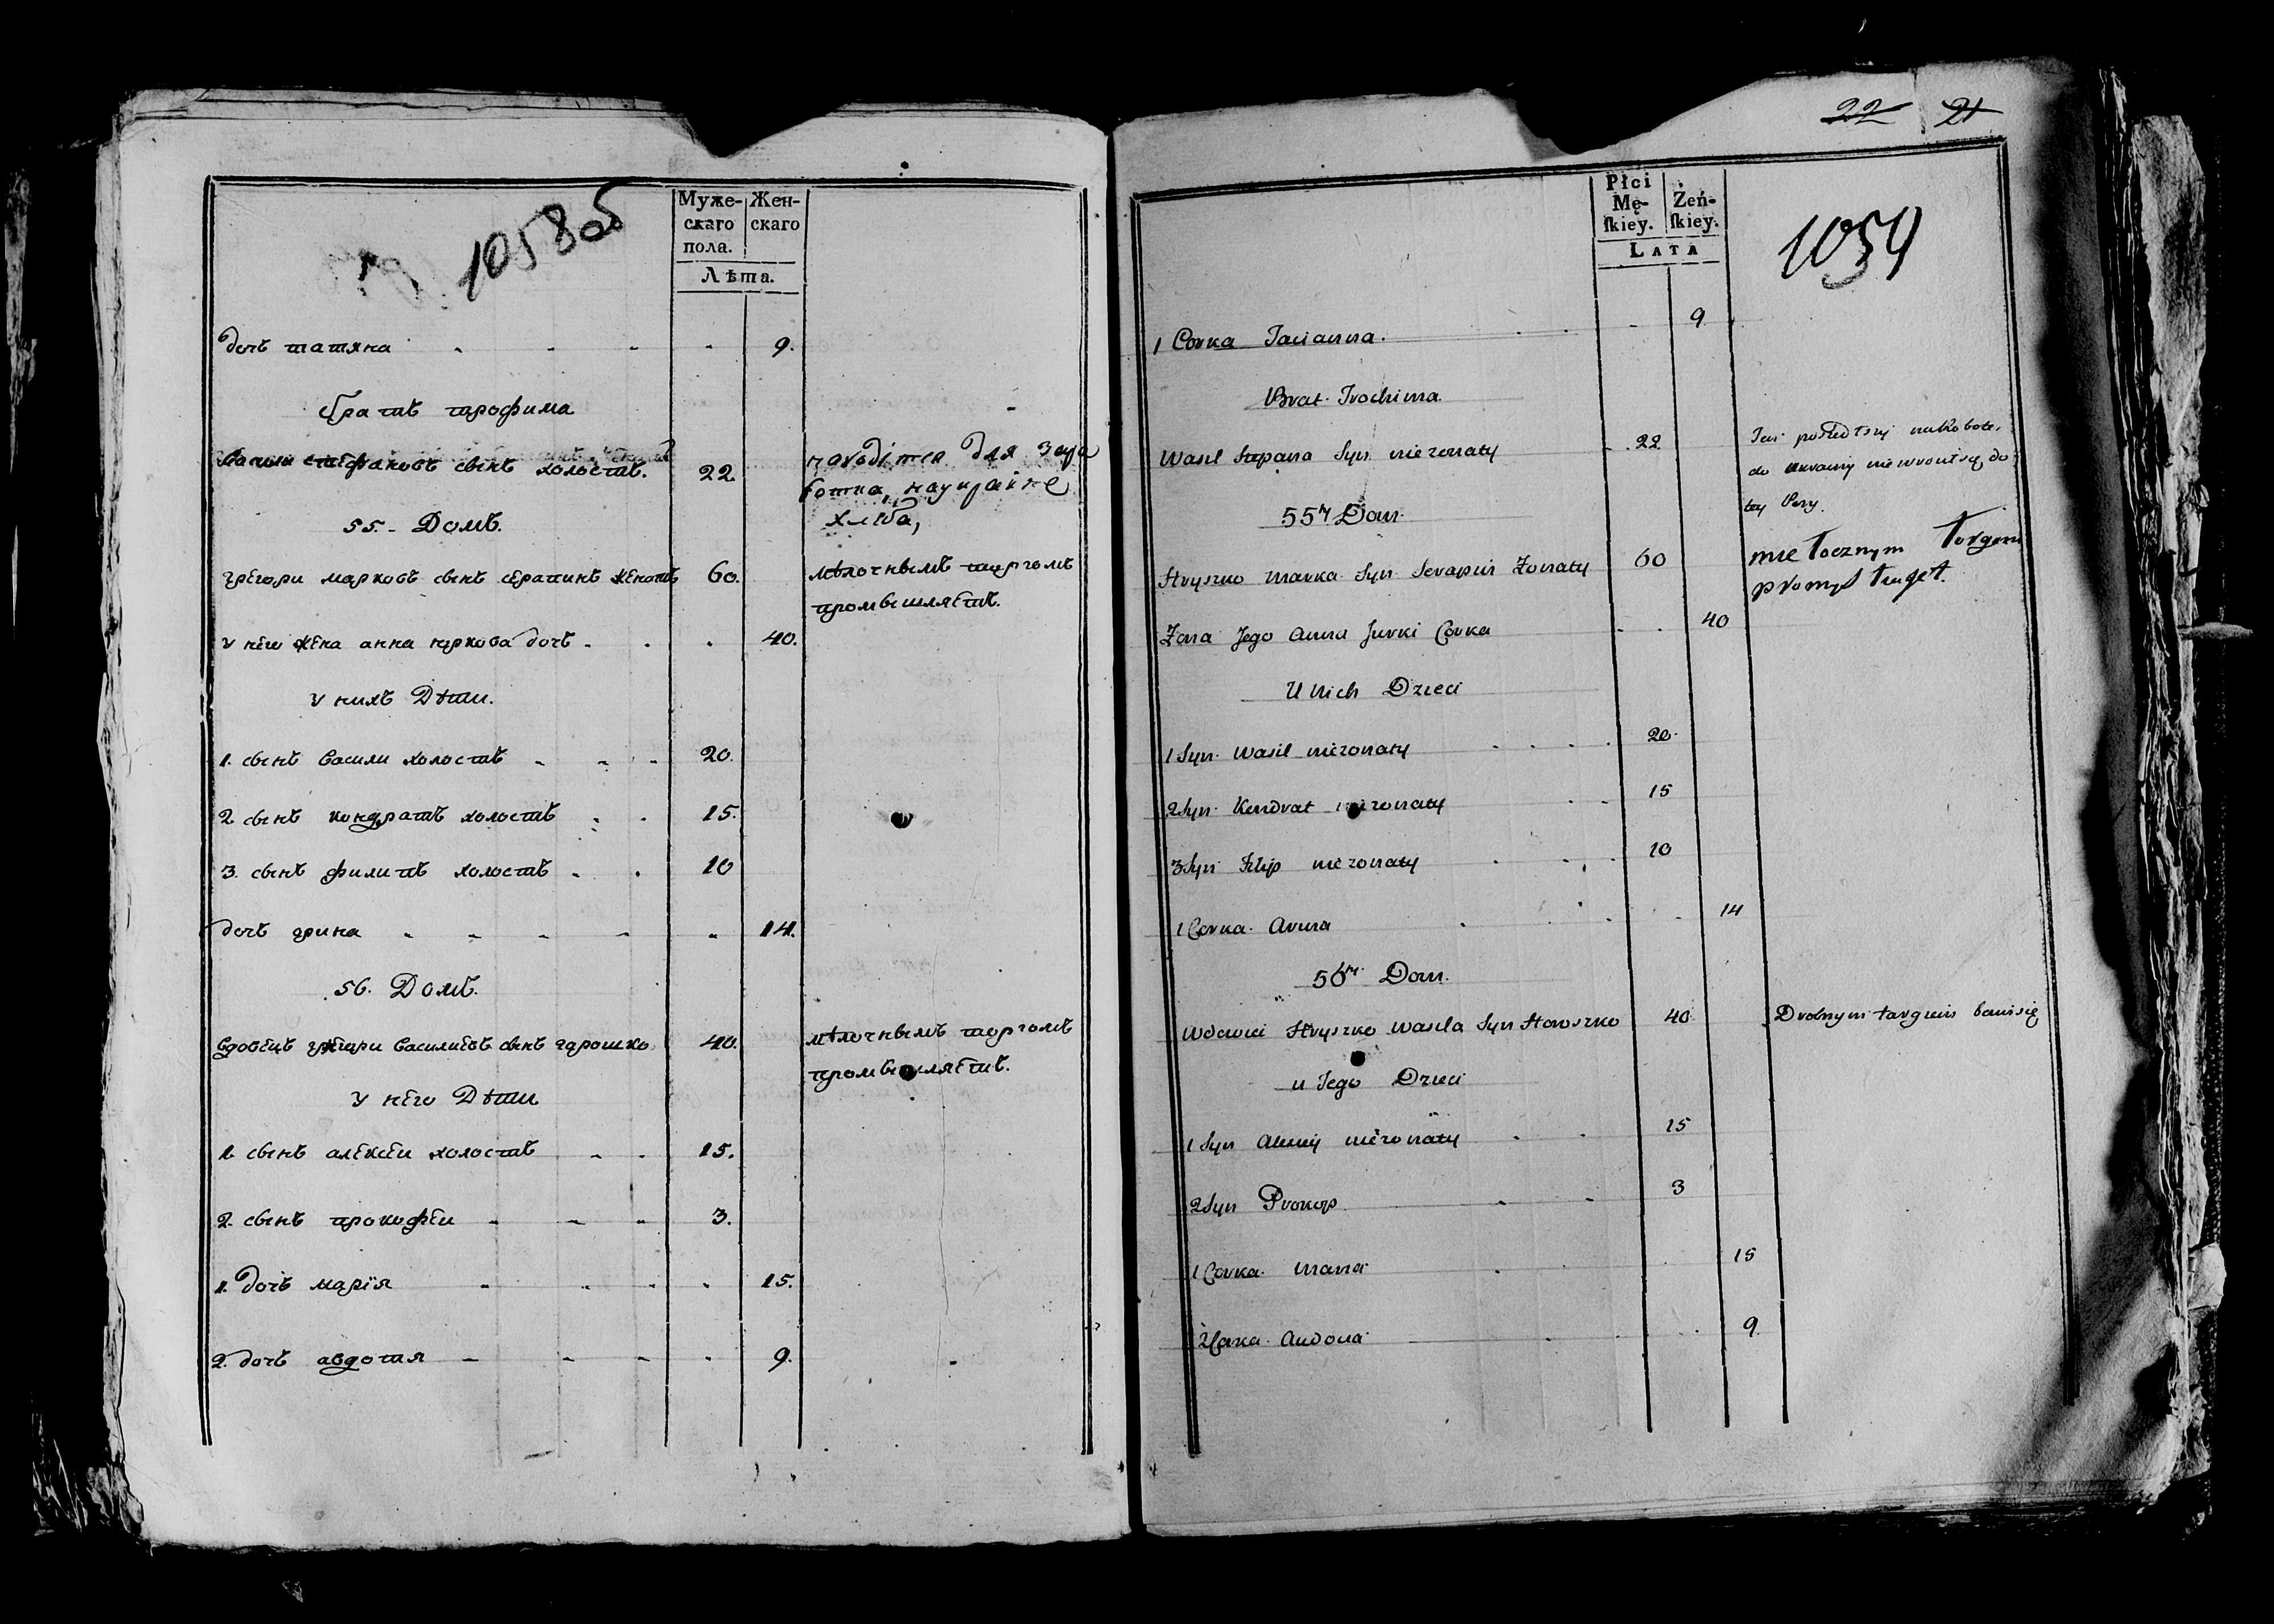 1058об
Муже-
скаго
пола.
Жен-
скаго
Лѣта.
дочь татяна 9.
братъ трофима
Васили стефановъ сынъ холостъ. 22.
находится для зара
ботка, наукраине
хлѣба,
55. Домъ.
григори марковъ сынъ серапинъ женатъ 60.
мѣлочнымъ торгомъ
промышляетъ.
у него жена анна юркова дочь 40.
у нихъ Дѣти.
1. сынъ васили холостъ 20.
2 сынъ кондратъ холостъ 15.
3. сынъ филипъ холостъ 10
дочь грина 14.
56. Домъ.
вдовецъ григори василиевъ сынъ гарошко 40.
мѣлочнымъ торгомъ
промышляетъ.
у него Дѣти
1. сынъ алексеи холостъ 15.
2. сынъ прокофеи 3.
1. дочь марїя 15.
2. дочь авдотя 9.
22 21
Płci
Mę-
ſkiey.
Zeń-
ſkiey.
LATA
1059
1 Corka Tacianna. 9
Brat Trochima
Wasil Stepana Syn niezonaty 22
Ten poszedłszy na Robote
do Ukrainy niewrocił się do
tey Pory.
55ty Dom
Hryszko Marka Syn Serapin Zonaty 60
mietocznym Torgom
promysł trugeł.
Zona Jego Anna Jurki Corka 40
U Nich Dzieci
1 Syn Wasil niezonaty 20
2 Syn Kondrat niezonaty 15
3 Syn Filip niezonaty 10
1 Corka Arina 14
56ty Dom
Wdowiec Hryszko Wasila Syn Horoszko 40
Drobnym targiem bawi się
u Jego Dzieci
1 Syn Alexiy niezonaty 15
2 Syn Prokop 3
1 Corka Maria 15
2 Corka Audocia 9